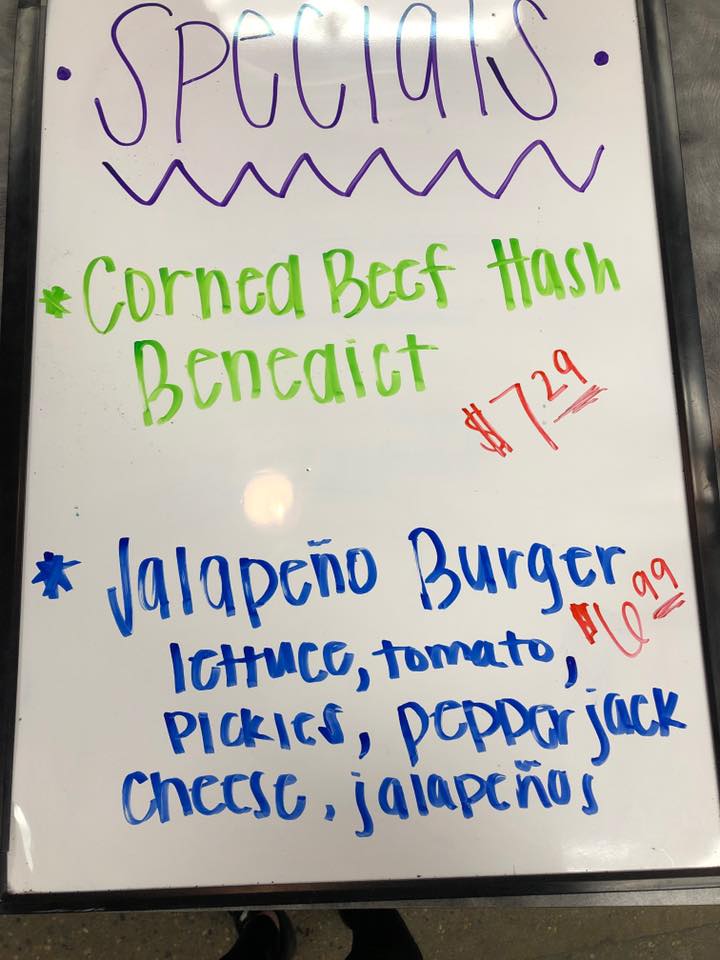 • Specials •
* Corned Beef Hash
Benedict
$7.29
* Jalapeño Burger
$6.99
lettuce, tomato,
pickles, pepper jack
cheese, jalapeños